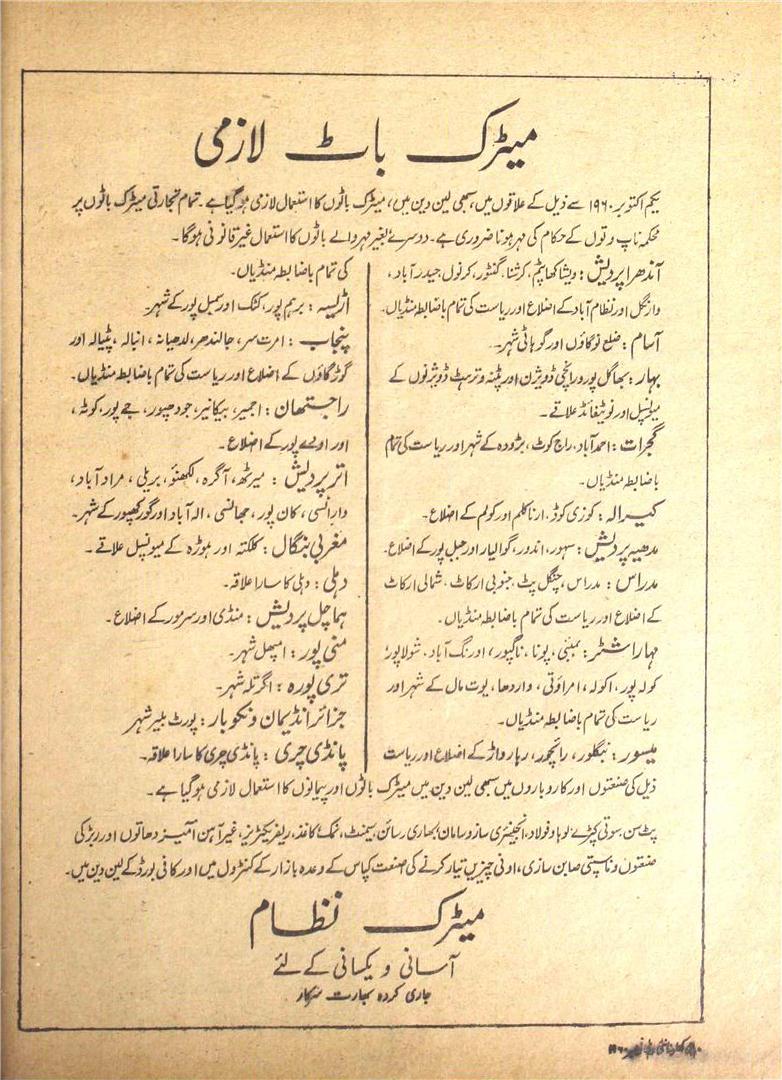 میٹرک باٹ لازمی
یکم اکتوبر ۱۹۶۰ سے ذیل کے علاقوں میں سبھی لین دین میں، میٹرک باٹوں کا استعمال لازمی ہوگیا ہے۔ تمام تجارتی میٹرک باٹوں پر
محکمہ ناپ و تول کے حکام کی مہر ہونا ضروری ہے۔ دوسرے بغیر مہر والے باٹوں کا استعمال غیر قانونی ہوگا۔
آندھرا پردیش: ویشاکھاپٹم، کرشنا، گنٹور، کرنول، حیدر آباد،
وارنگل اور نظام آباد کے اضلاع اور ریاست کی تمام باضابطہ منڈیاں۔
آسام: ضلع نوگاؤں اور گوہاٹی شہر۔
بہار: بھاگل پور ورانچی ڈویژن اور پٹنہ و ترہٹ ڈویژنوں کے
میونسپل اور نوٹیفائڈ علاقے۔
گجرات: احمد آباد، راج کوٹ، بڑودہ کے شہر اور ریاست کی تمام
باضابطہ منڈیاں۔
کیرالہ: کوزی کوڈ، ارناکلم اور کولم کے اضلاع۔
مدھیہ پردیش: سہور، اندور، گوالیار اور جبل پور کے اضلاع۔
مدراس: مدراس، چنگل پٹ، جنوبی ارکاٹ، شمالی ارکاٹ
کے اضلاع اور ریاست کی تمام باضابطہ منڈیاں۔
مہاراشٹر: بمبئی، پونا، ناگپور، اورنگ آباد، شولاپور،
کولہ پور، اکولہ، امراؤتی، واردھا، یوت مال کے شہر اور
ریاست کی تمام باضابطہ منڈیاں۔
میسور: بنگلور، رانچور، دہارواڑ کے اضلاع اور ریاست
کی تمام باضابطہ منڈیاں۔
اڑلیسہ: برہم پور، کٹک اور سمبل پور کے شہر۔
پنجاب: امرت سر، جالندھر، لدھیانہ، انبالہ، پٹیالہ اور
گوڑگاؤں کے اضلاع اور ریاست کی تمام باضابطہ منڈیاں۔
راجستھان: اجمیر، بیکانیر، جودھپور، جے پور، کوٹہ،
اور اودے پور کے اضلاع۔
اتر پردیش: میرٹھ، آگرہ، لکھنؤ، بریلی، مراد آباد،
وارانسی، کان پور، جھانسی، الہ آباد اور گورکھپور کے شہر۔
مغربی بنگال: کلکتہ اور ہوڑہ کے میونسپل علاقے۔
دہلی: دہلی کا سارا علاقہ۔
ہماچل پردیش: منڈی اور سرمور کے اضلاع۔
منی پور: امپھل شہر۔
تری پورہ: اگرتلہ شہر۔
جزائر انڈیمان و نکوبار: پورٹ بلیر شہر
پانڈی چری: پانڈی چری کا سارا علاقہ۔
ذیل کی صنعتوں اور کاروباروں میں سبھی لین دین میں میٹرک باٹوں اور پیمانوں کا استعمال لازمی ہوگیا ہے۔
پٹ سن، سوتی کپڑے، لوہا و فولاد، انجنیئری ساز و سامان، بھاری رسائن، سیمنٹ، نمک، کاغذ، ریفریکٹریز، غیر آہن آمیز دھاتوں اور ربڑ کی
صنعتوں و ناسپتی صابن سازی، اونی چیزیں تیار کرنے کی صنعت کپاس کے وعدہ بازار کے کنٹرول میں اور کافی بورڈ کے لین دین میں۔
میٹرک نظام
آسانی و یکسانی کے لئے
جاری کردہ بھارت سرکار